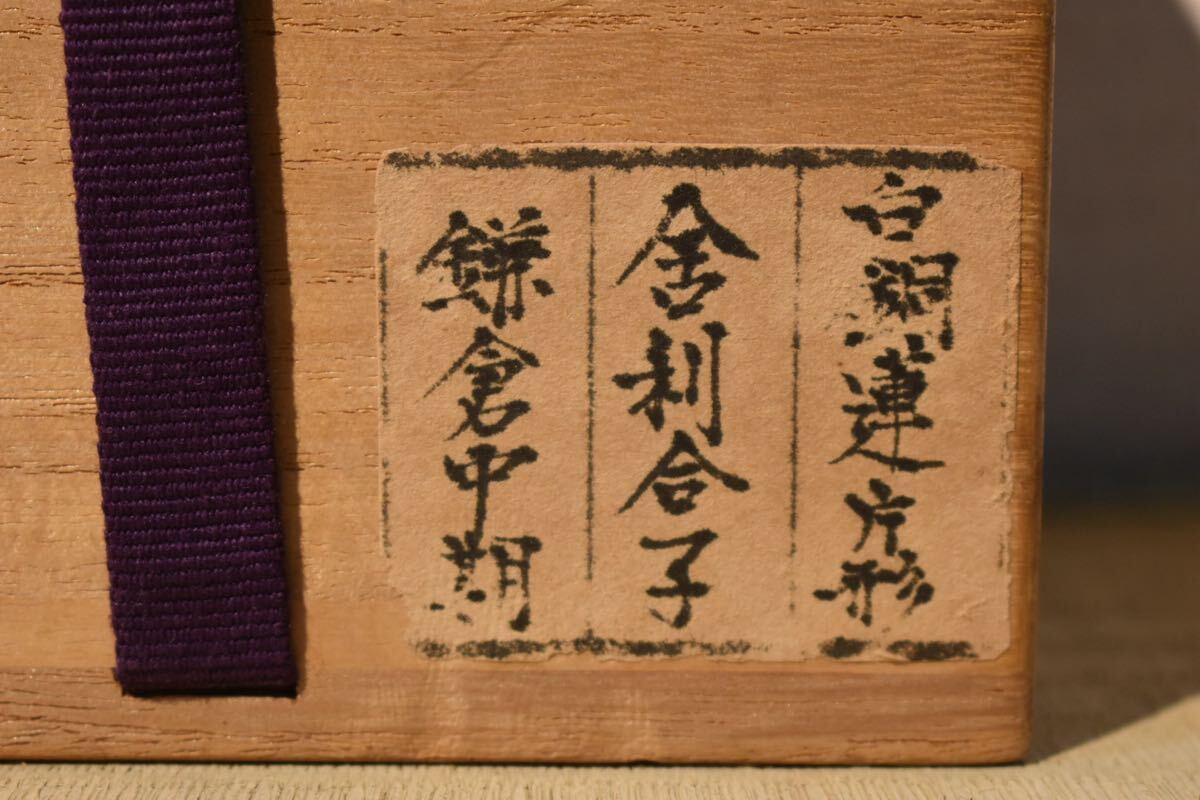 白銅蓮片形
舎利合子
鎌倉中期